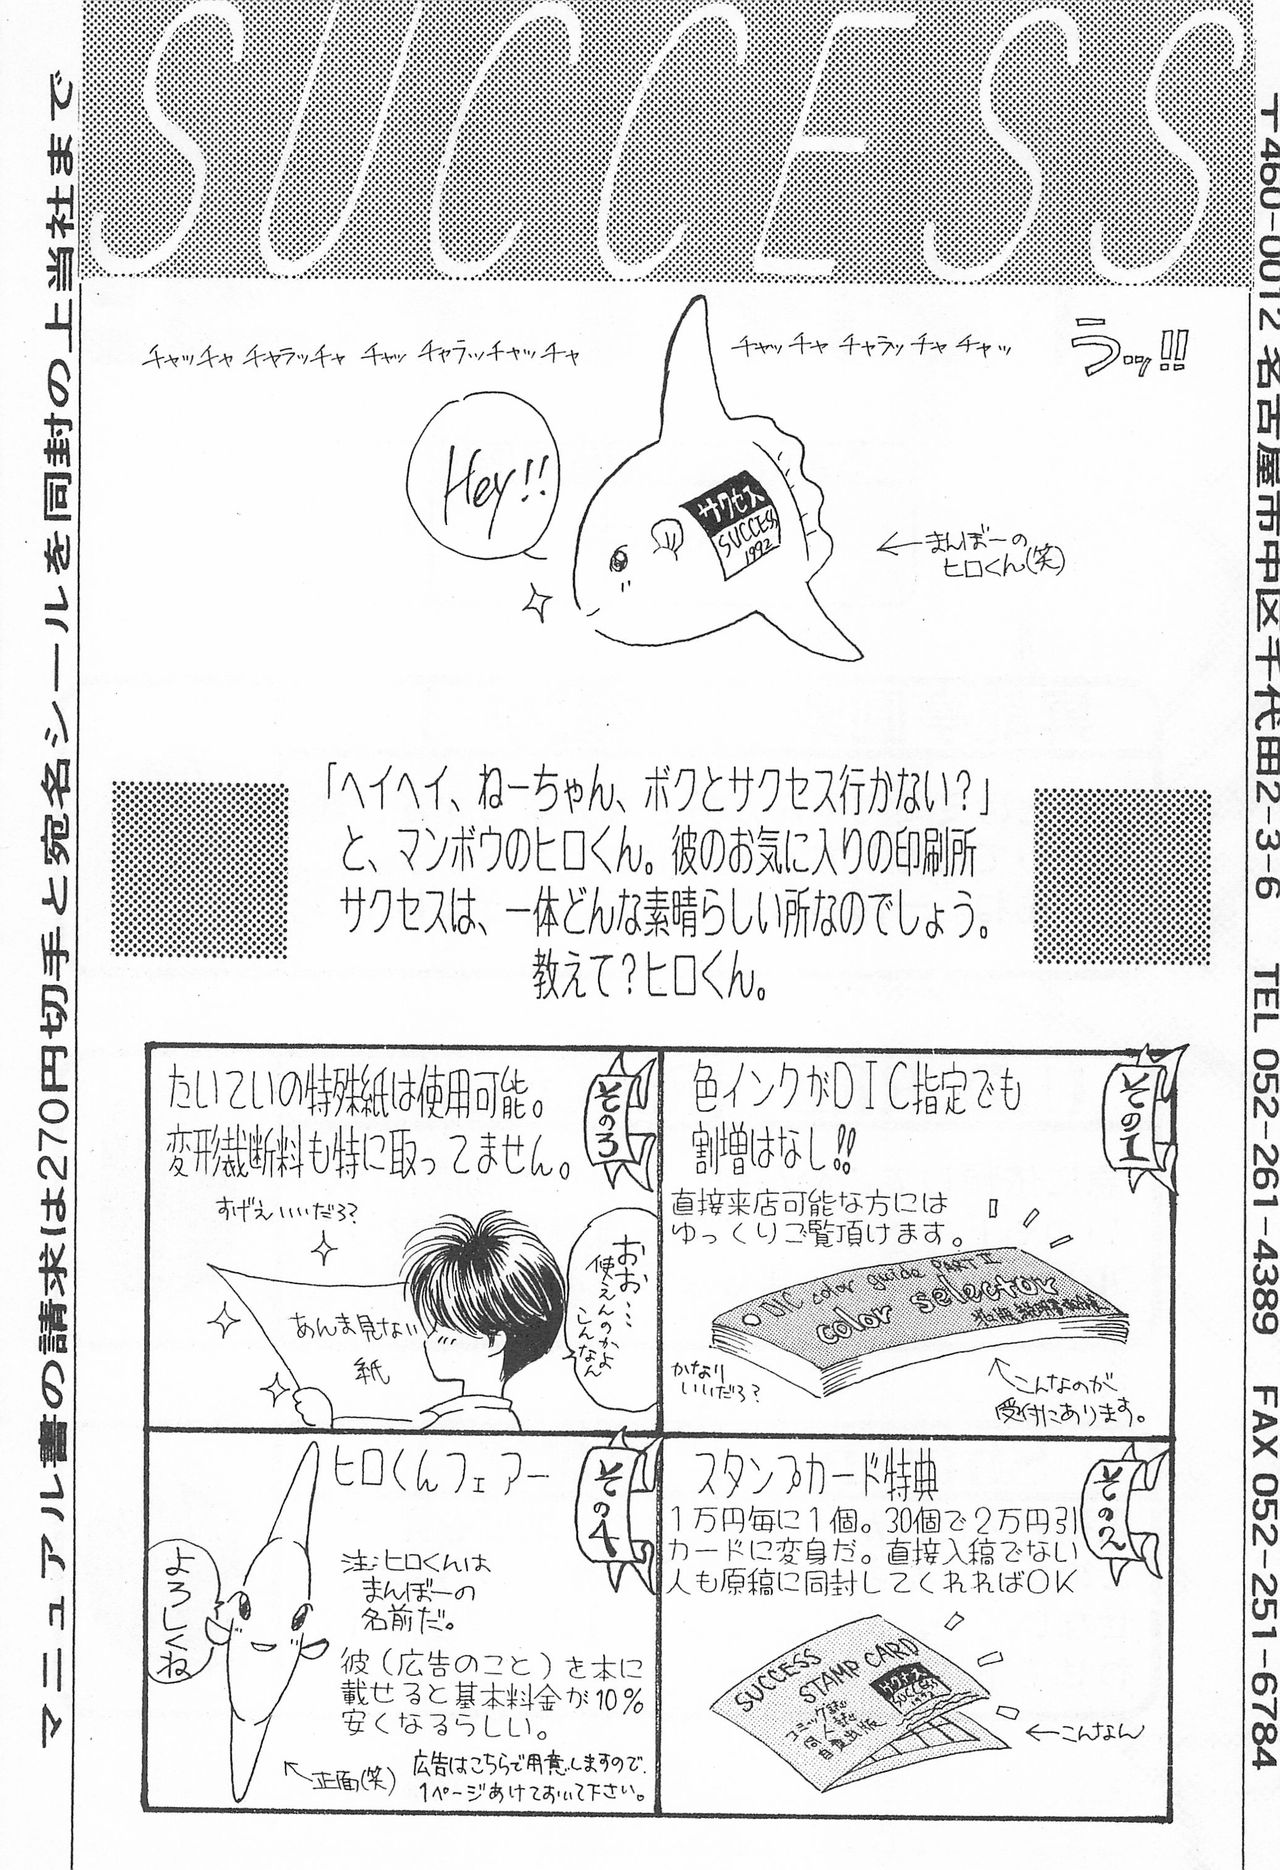 SUCCESS
チャッチャ チャラッチャ チャッ チャラッチャッチャ
チャッチャ チャラッチャ チャッ
うッ!!
Hey!!
サクセス
SUCCESS
1992
←まんぼーの
ヒロくん(笑)
「ヘイヘイ、ねーちゃん、ボクとサクセス行かない?」
と、マンボウのヒロくん。彼のお気に入りの印刷所
サクセスは、一体どんな素晴らしい所なのでしょう。
教えて?ヒロくん。
その1
色インクがDIC指定でも
割増はなし!!
直接来店可能な方には
ゆっくりご覧頂けます。
DIC color guide PART II
color selector
かなり
いいだろ?
←こんなのが
受付にあります。
その2
スタンプカード特典
1万円毎に1個。30個で2万円引
カードに変身だ。直接入稿でない
人も原稿に同封してくれればOK
SUCCESS
STAMP CARD
コミック誌
同人誌
自費出版
サクセス
SUCCESS
1992
←こんなん
その3
たいていの特殊紙は使用可能。
変形裁断料も特に取ってません。
すげえいいだろ?
おお…
こんなん
使えんのかよ
あんま見ない
紙
その4
ヒロくんフェアー
注:ヒロくんは
まんぼーの
名前だ。
よろしくね
彼(広告のこと)を本に
載せると基本料金が10%
安くなるらしい。
←正面(笑)
広告はこちらで用意しますので、
1ページあけておいて下さい。
マニュアル書の請求は270円切手と宛名シールを同封の上当社まで
〒460-0012 名古屋市中区千代田2-3-6 TEL 052-261-4389 FAX 052-251-6784